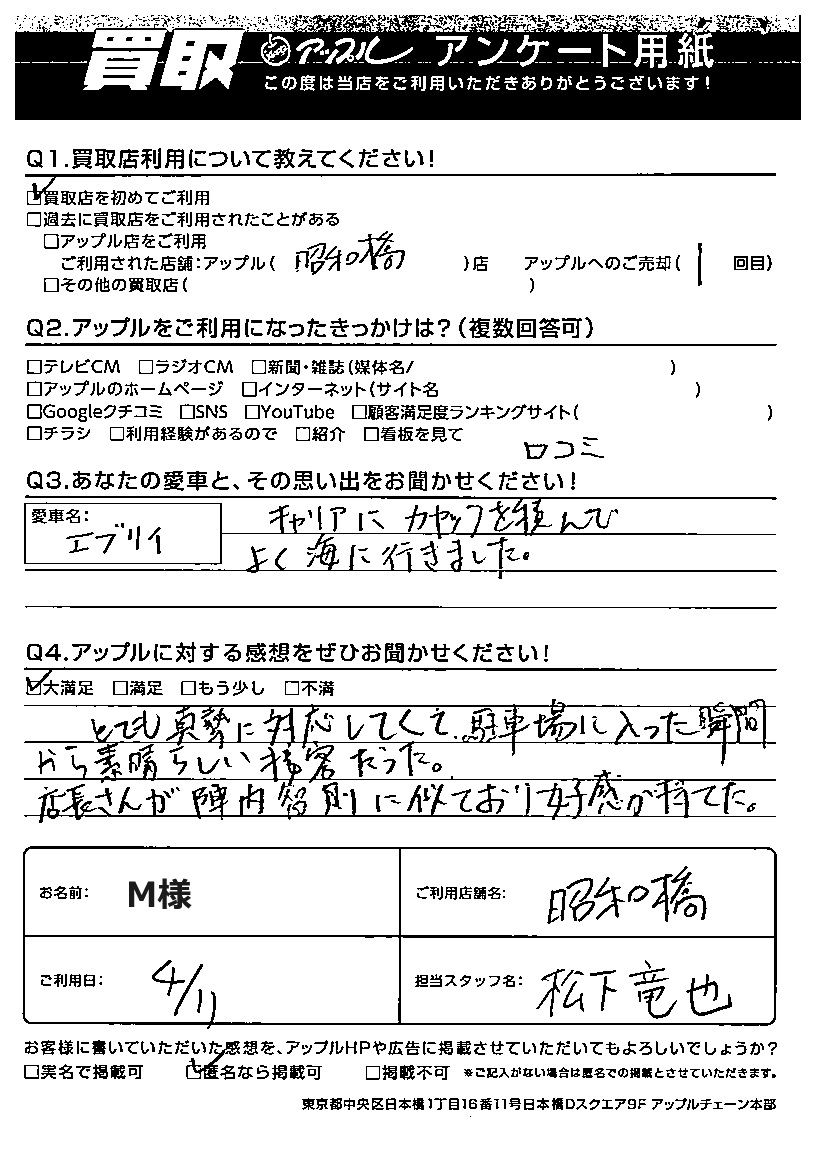 買取 アップル アンケート用紙
この度は当店をご利用いただきありがとうございます!
Q1.買取店利用について教えてください!
☑買取店を初めてご利用
□過去に買取店をご利用されたことがある
□アップル店をご利用
ご利用された店舗:アップル( 昭和橋 )店 アップルへのご売却( 1 回目)
□その他の買取店( )
Q2.アップルをご利用になったきっかけは?(複数回答可)
□テレビCM □ラジオCM □新聞・雑誌(媒体名/ )
□アップルのホームページ □インターネット(サイト名 )
□Googleクチコミ □SNS □YouTube □顧客満足度ランキングサイト( )
□チラシ □利用経験があるので □紹介 □看板を見て
口コミ
Q3.あなたの愛車と、その思い出をお聞かせください!
愛車名:
エブリイ
キャリアにカヤックを積んで
よく海に行きました。
Q4.アップルに対する感想をぜひお聞かせください!
☑大満足 □満足 □もう少し □不満
とても真摯に対応してくて、駐車場に入った瞬間
から素晴らしい接客だった。
店長さんが陣内智則に似ており好感が持てた。
お名前: M様 ご利用店舗名: 昭和橋
ご利用日: 4/11 担当スタッフ名: 松下竜也
お客様に書いていただいた感想を、アップルHPや広告に掲載させていただいてもよろしいでしょうか?
□実名で掲載可 ☑匿名なら掲載可 □掲載不可 ※ご記入がない場合は匿名での掲載とさせていただきます。
東京都中央区日本橋1丁目16番11号日本橋Dスクエア9F アップルチェーン本部